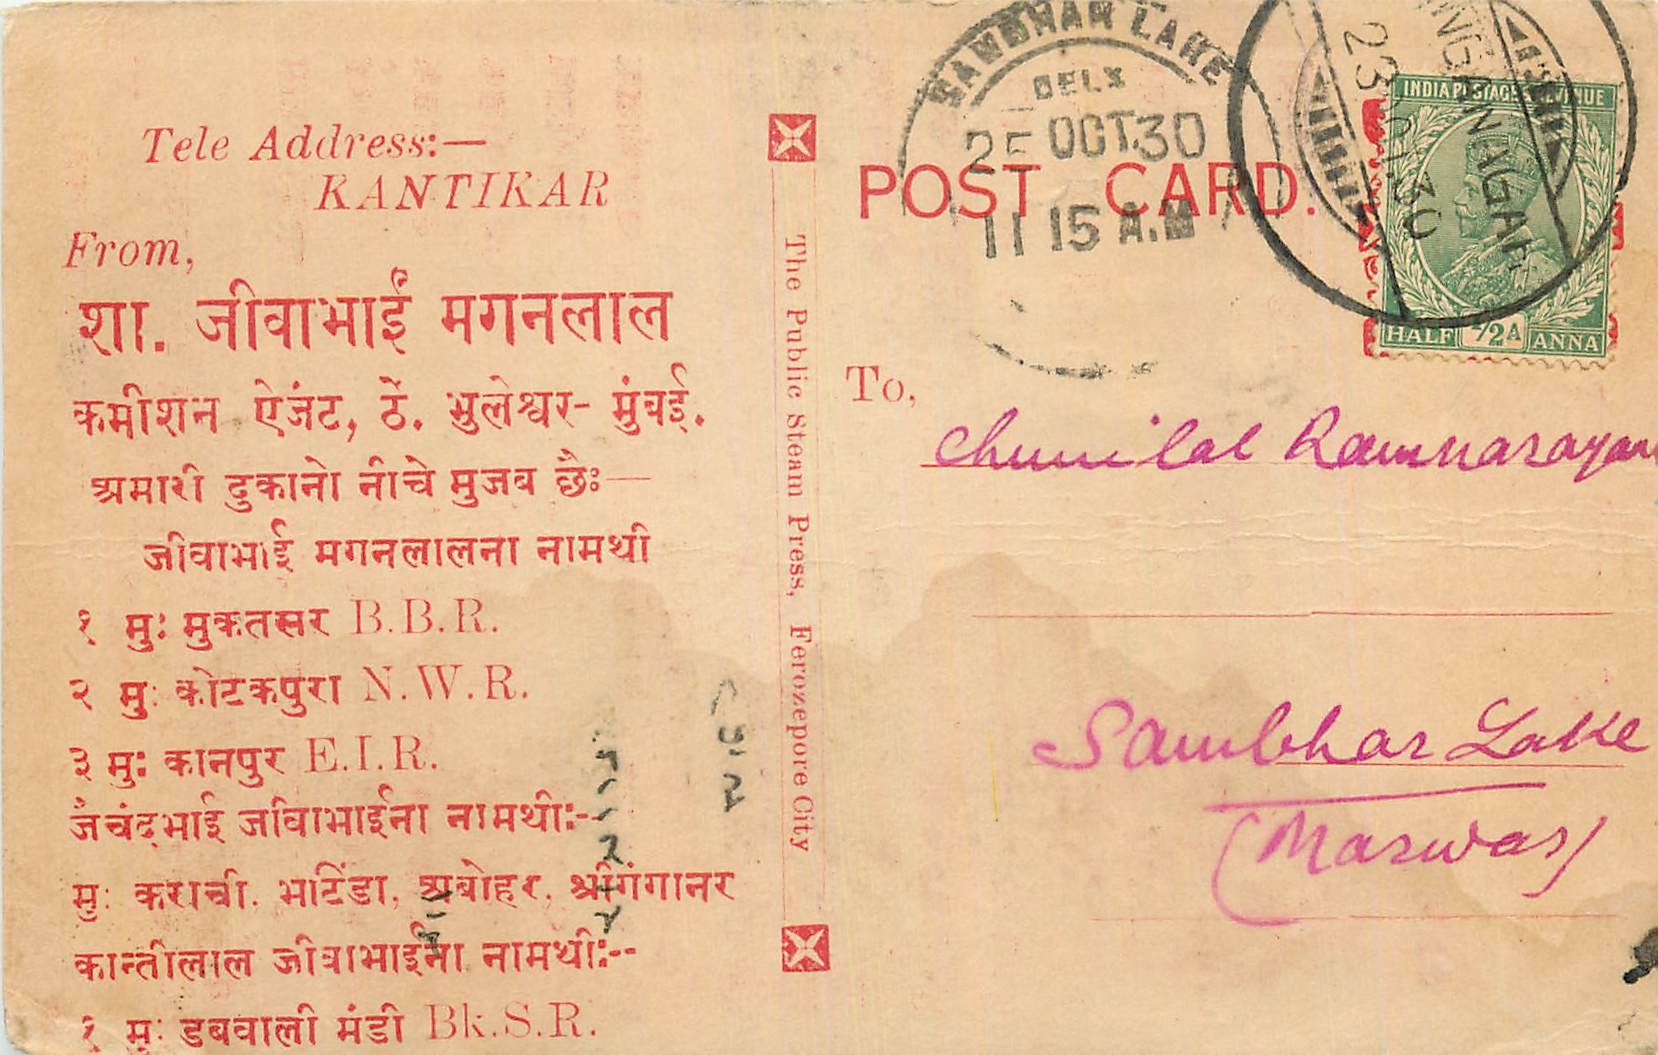 Tele Address:—
KANTIKAR
From,
शा. जीवाभाई मगनलाल
कमीशन ऐजंट, ठें. भुलेश्वर- मुंबई.
अमारी दुकानो नीचे मुजब छैः—
जीवाभाई मगनलालना नामथी
१ मुः मुकतसर B.B.R.
२ मुः कोटकपुरा N.W.R.
३ मुः कानपुर E.I.R.
जैचंदभाई जीवाभाईना नामथी:-
मुः कराची. भटिंडा, अबोहर, श्रीगंगानर
कान्तीलाल जीवाभाईना नामथी:--
१ मुः डबवाली मंडी Bk.S.R.
The Public Steam Press, Ferozepore City
SAMBHAR LAKE
DELY
25 OCT.30
11 15 A.M
POST CARD.
GANGANAGAR
23 OCT.30
INDIA POSTAGE REVENUE
HALF 1/2A ANNA
To,
Chunilal Ramnarayan
Sambhar Lake
(Marwar)